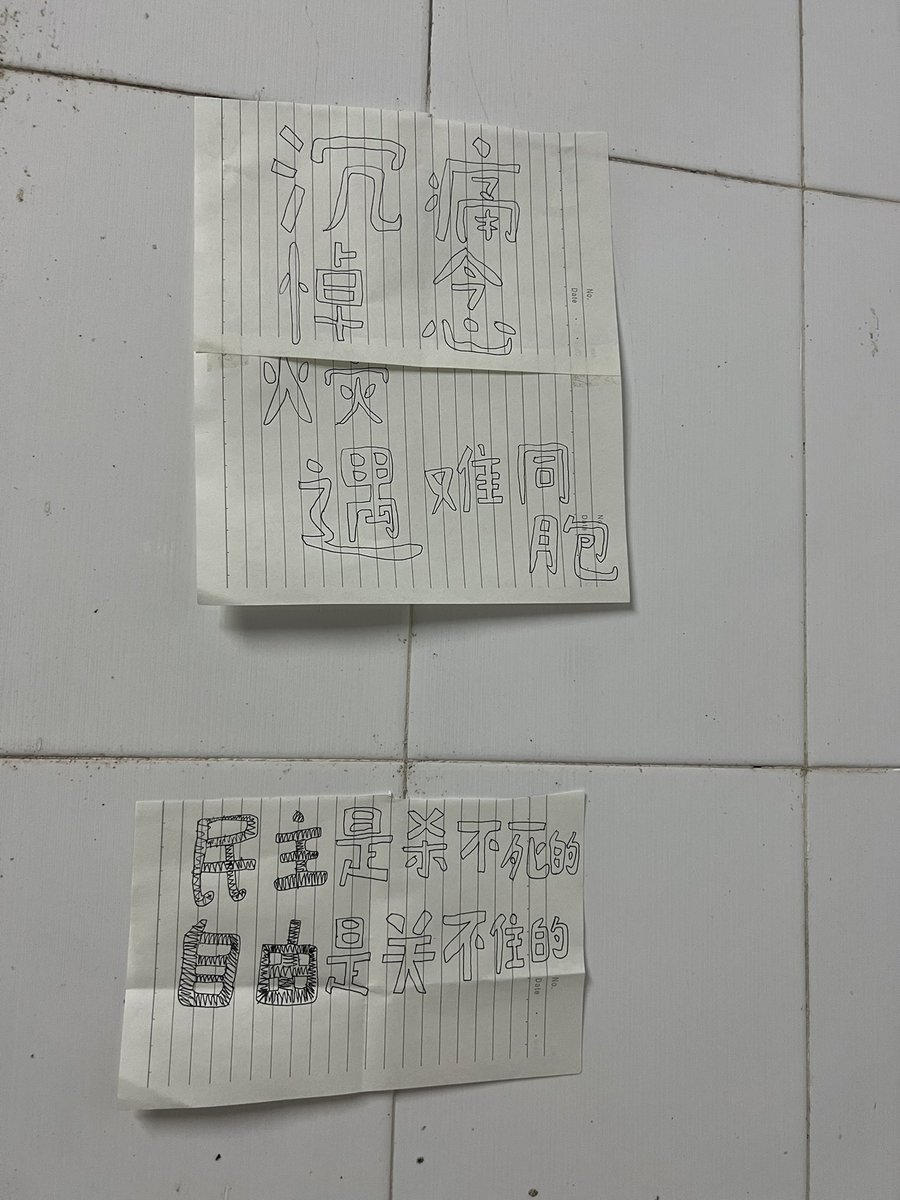 沉痛
悼念
火灾
遇难同胞
No.
Date
No.
Date
民主是杀不死的
自由是关不住的
No.
Date